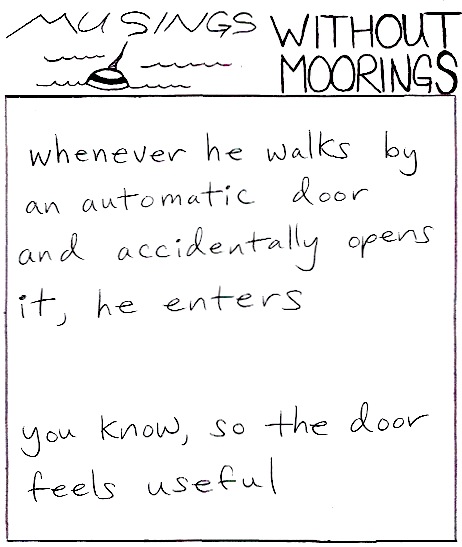 MUSINGS WITHOUT
MOORINGS
whenever he walks by
an automatic door
and accidentally opens
it, he enters
you know, so the door
feels useful